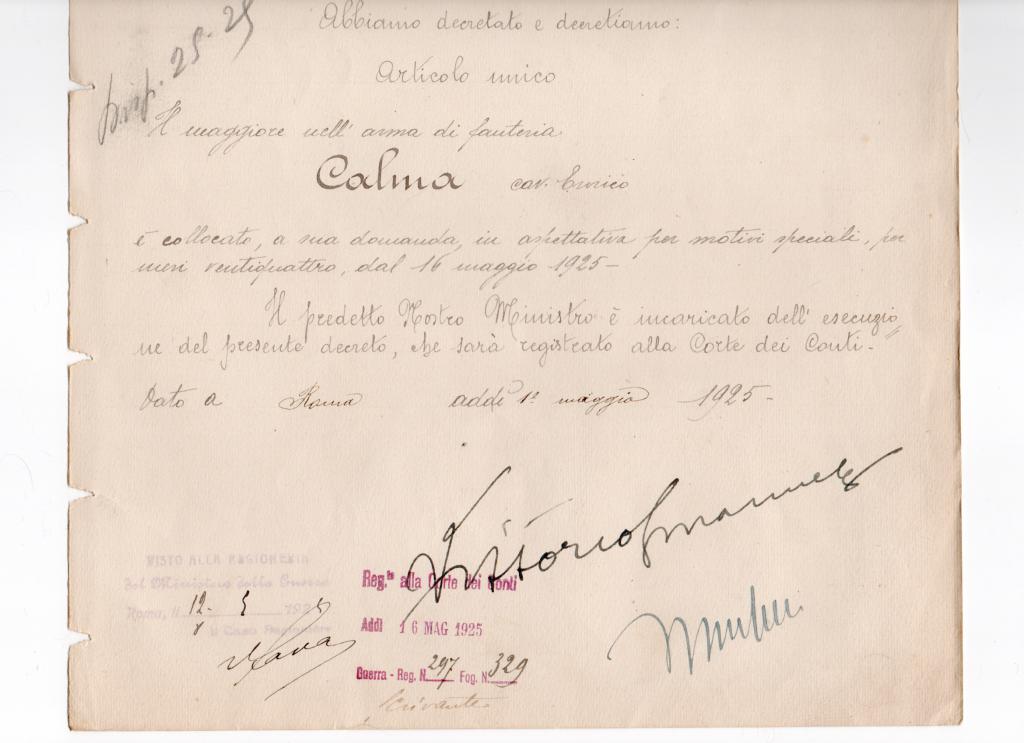 Abbiamo decretato e decretiamo:
25-25
Articolo unico
Il maggiore nell' arma di fanteria
Calma cav. Enrico
è collocato, a sua domanda, in aspettativa per motivi speciali, per
mesi ventiquattro, dal 16 maggio 1925 -
Il predetto Nostro Ministro è incaricato dell' esecuzio
ne del presente decreto, che sarà registrato alla Corte dei Conti.-
Dato a Roma addì 1° maggio 1925 -
Vittorio Emanuele
VISTO ALLA RAGIONERIA
del Ministero della Guerra
Roma, li 12 - 5 1925
Il Capo Ragioniere
Reg.to alla Corte dei Conti
Addì 16 MAG 1925
Guerra - Reg. N. 297 Fog. N. 329